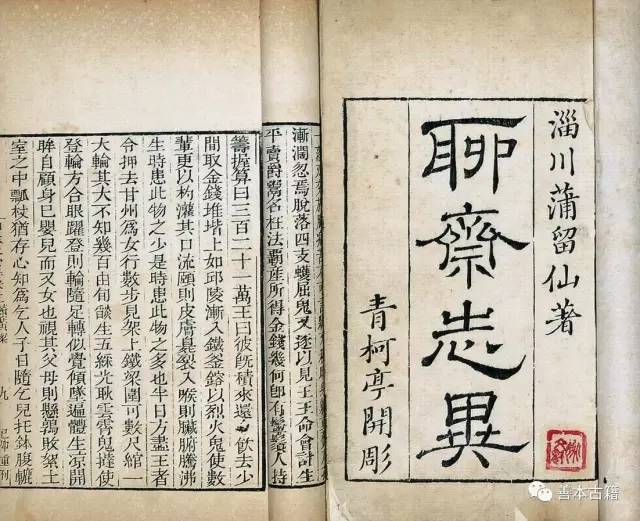 淄川蒲留仙著
聊齋志異
青柯亭開彫
漸濶忽焉脫落四支蠖屈鬼又逐以見王王命會計生
平賣爵鬻名枉法霸産所得金錢幾何卽有鬡鬚人持
籌握算曰三百二十一萬王曰彼旣積來還飲去少
間取金錢堆堦上如邱陵漸入鐵釜鎔以烈火鬼使數
輩更以杓灌其口流頤則皮膚臭裂入喉則臟腑騰沸
生時患此物之少是時患此物之多也半日方盡王者
令押去甘州爲女行數步見架上鐵梁圍可數尺綰一
大輪其大不知幾百由旬燄生五綵光耿雲霄鬼撻使
登輪方合眼躍登則輪隨足轉似覺傾墜遍體生凉開
眸自顧身已嬰兒而又女也視其父母則懸鶉敗絮土
室之中瓢杖猶存心知爲乞人子日隨乞兒托鉢腹轆
九
善本古籍